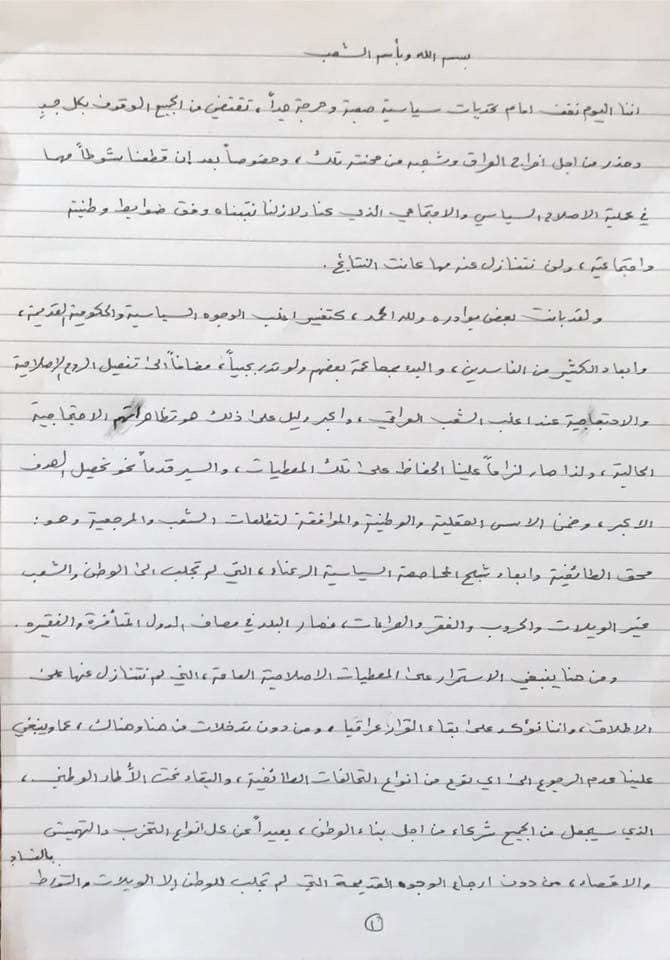 بسم الله وبأسم الشعب
اننا اليوم نقف امام تحديات سياسية صعبة وحرجة جداً، تقتضي من الجميع الوقوف بكل جدٍ
وحذر من اجل اخراج العراق وشعبه من محنته تلك، وخصوصاً بعد إن قطعنا شوطاً مهما
في عملية الاصلاح السياسي والاجتماعي الذي كنا ولازلنا نتبناه وفق ضوابط وطنية
واجتماعية، ولن نتنازل عنه مهما كانت النتائج.
ولقد بانت بعض بوادره ولله الحمد، كتغيير اغلب الوجوه السياسية والحكومية القديمة،
وابعاد الكثير من الفاسدين، والبدء بمحاكمة بعضهم ولو تدريجياً، مضافاً الى تفعيل الروح الاصلاحية
والاحتجاجية عند اغلب الشعب العراقي، واكبر دليل على ذلك هو تظاهراتهم الاحتجاجية
الحالية، ولذا صار لزاماً علينا الحفاظ على تلك المعطيات، والسير قدماً نحو تحصيل الهدف
الاكبر، وضمن الاسس العقلية والوطنية والموافقة لتطلعات الشعب والمرجعية وهو:
محق الطائفية وابعاد شبح المحاصصة السياسية الرعناء، التي لم تجلب الى الوطن والشعب
غير الويلات والحروب والفقر والصراعات، فصار البلد في مصاف الدول المتأخرة والفقيره.
ومن هنا ينبغي الاستمرار على المعطيات الاصلاحية العامة، التي لم نتنازل عنها على
الاطلاق، واننا نؤكد على بقاء القرار عراقيا، ومن دون تدخلات من هنا وهناك، كما وينبغي
علينا عدم الرجوع الى اي نوع من انواع التحالفات الطائفية، والبقاء تحت الأطار الوطني،
الذي سيجعل من الجميع شركاء من اجل بناء الوطن، بعيداً عن كل انواع التحزب والتهميش
والاقصاء، من دون ارجاع الوجوه القديمة التي لم تجلب للوطن إلا الويلات والتورط بالفساد
١